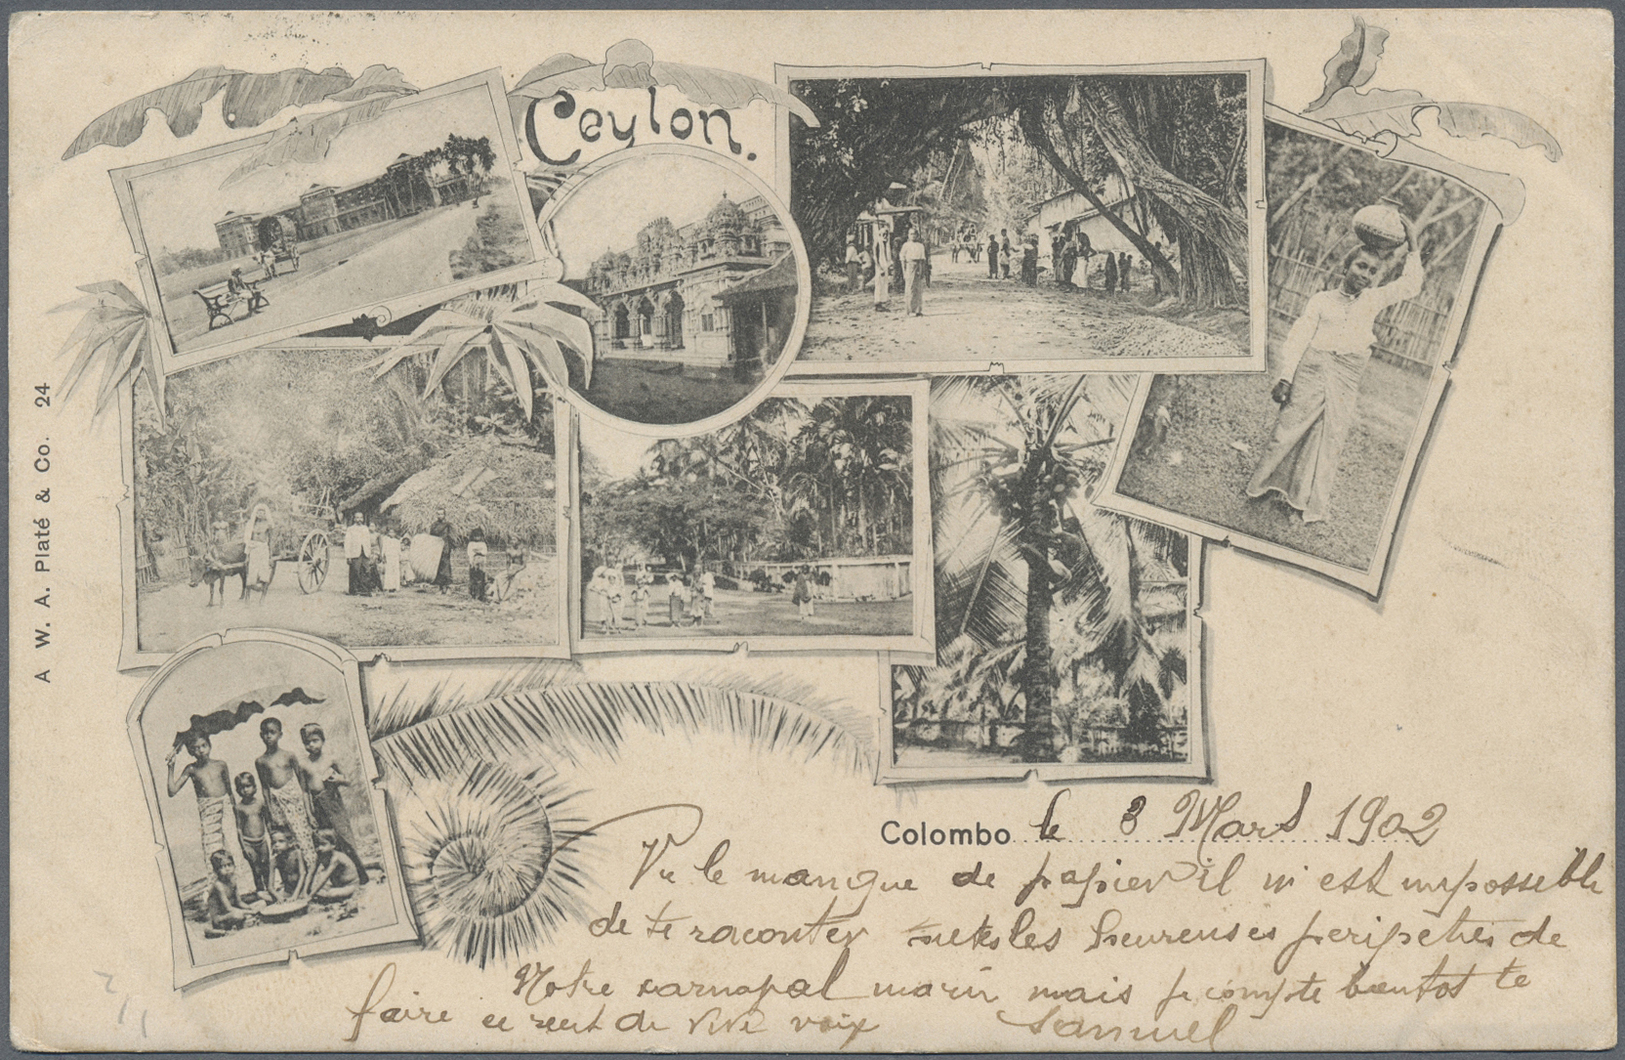 Ceylon.
A W. A. Platé & Co. 24
Colombo le 3 Mars 1902
Vu le manque de papier il m'est impossible
de te raconter les heureuses peripeties de
Notre carnaval marin mais je compte bientot te
faire ce recit de vive voix Samuel